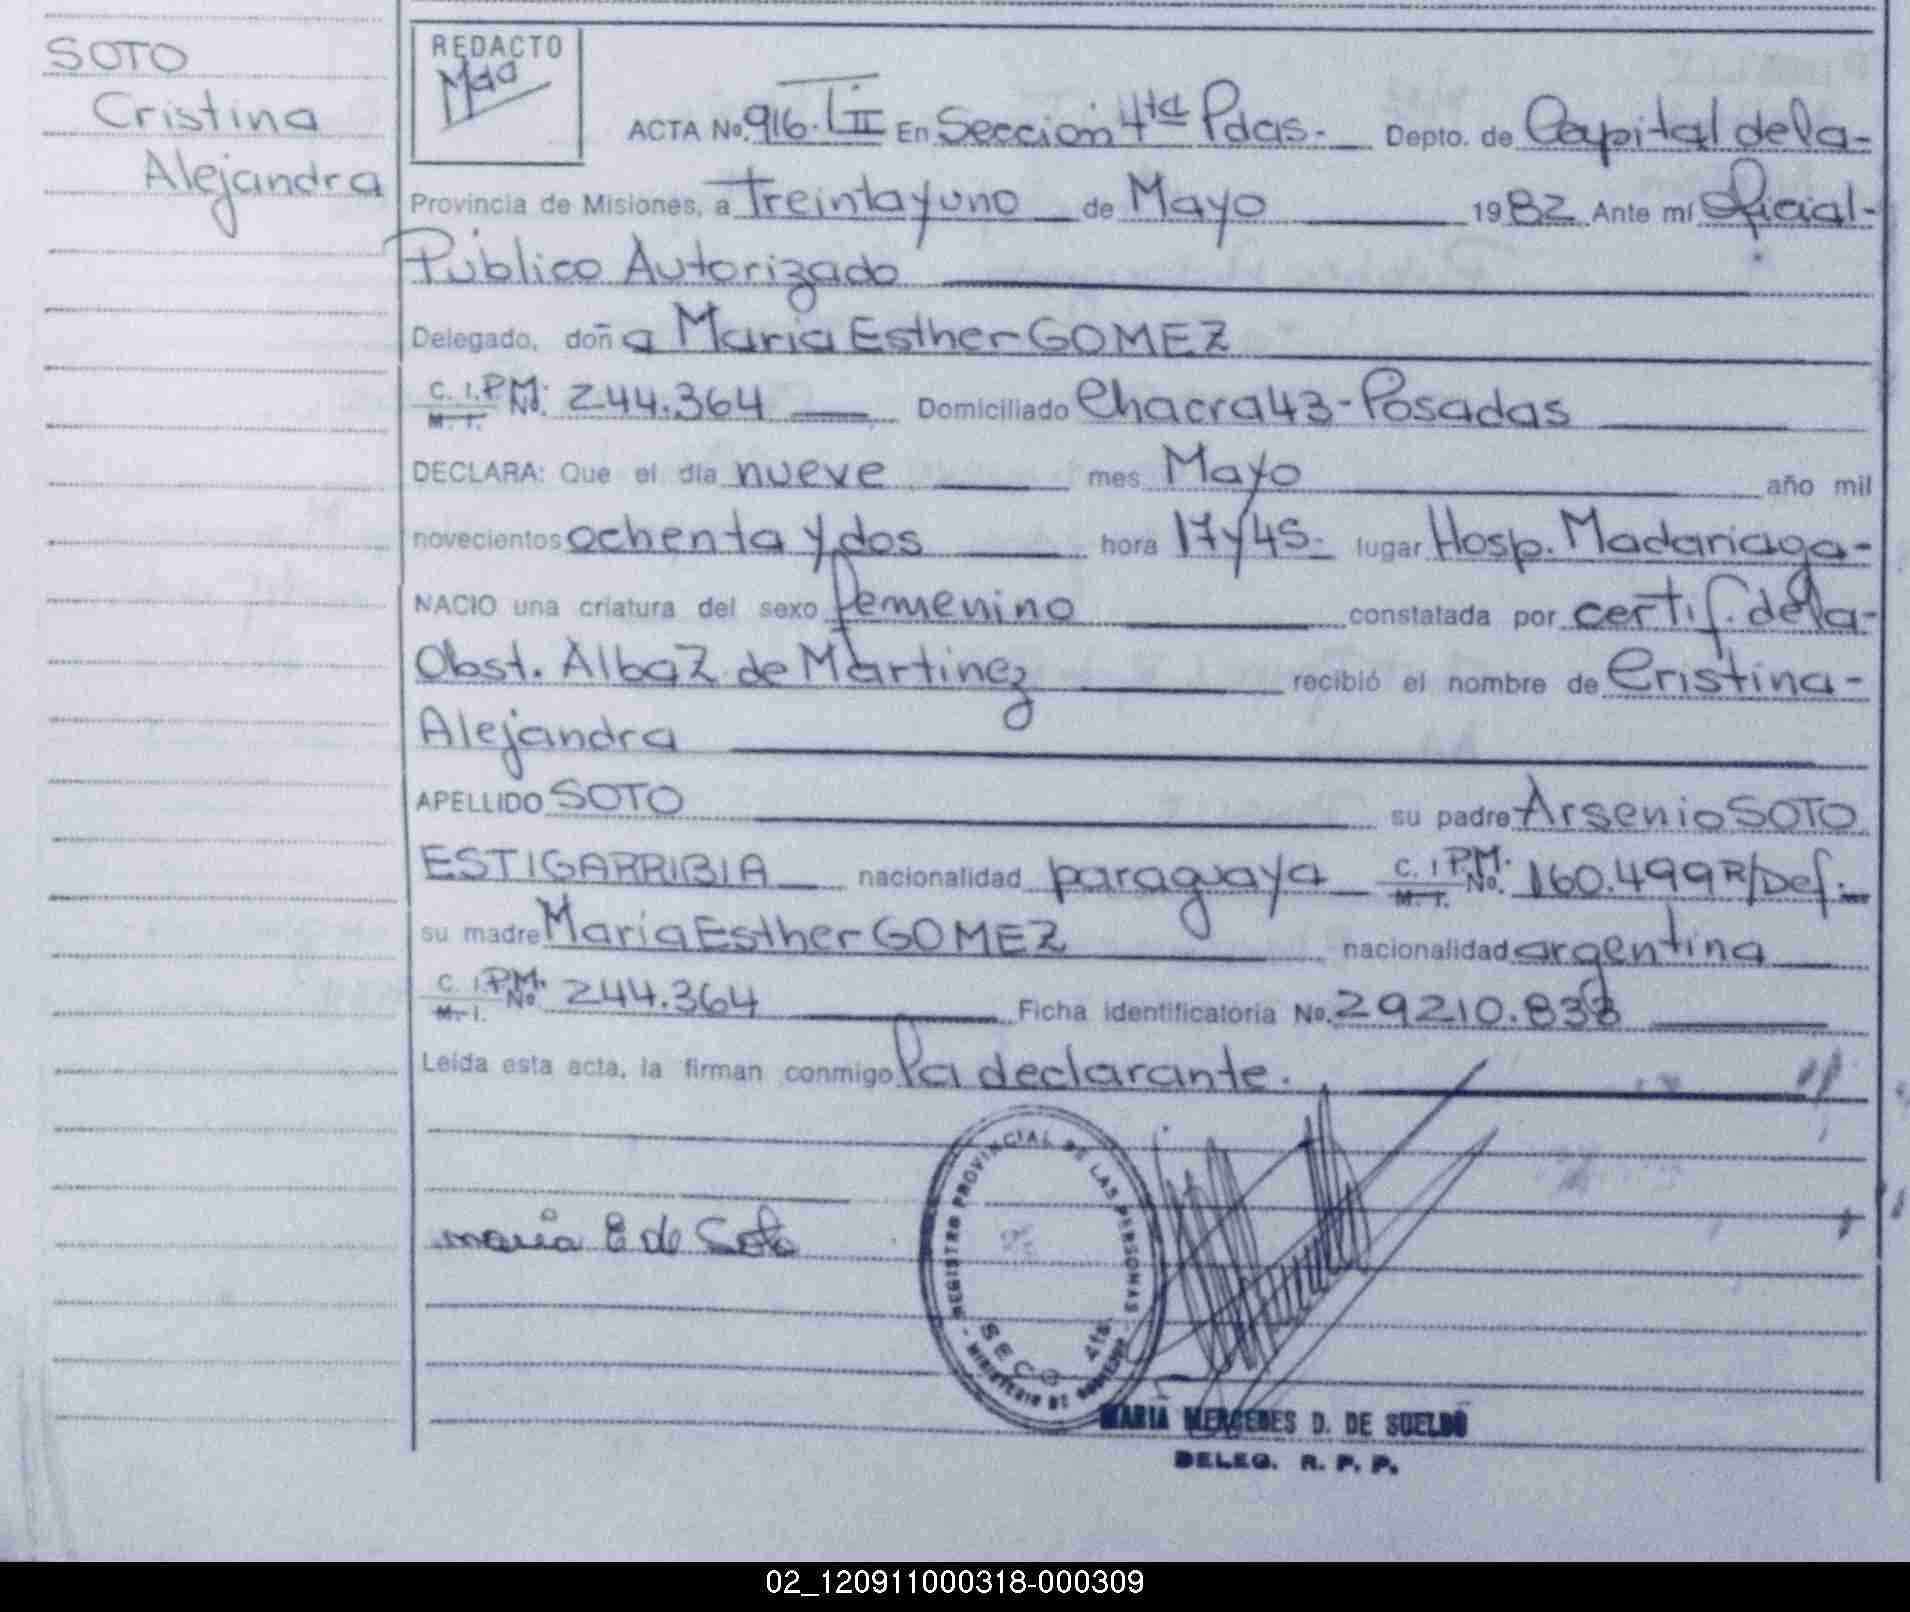 SOTO
Cristina
Alejandra
REDACTO
ACTA No. 916. T II En Sección 4ta Pdas.- Depto. de Capital de la-
Provincia de Misiones, a Treinta y uno de Mayo 1982 Ante mí Oficial-
Público Autorizado
Delegado, doña María Esther GOMEZ
C. I. P.M. No. 244.364 Domiciliado Chacra 43 - Posadas
M. I.
DECLARA: Que el día nueve mes Mayo año mil
novecientos ochenta y dos hora 17 y 45.- lugar Hosp. Madariaga-
NACIO una criatura del sexo femenino constatada por certif. de la-
Obst. Alba Z de Martínez recibió el nombre de Cristina-
Alejandra
APELLIDO SOTO su padre Arsenio SOTO
ESTIGARRIBIA nacionalidad paraguaya C. I P.M. No. 160.499 R/Def.-
M. I.
su madre María Esther GOMEZ nacionalidad argentina
C. I P.M. No. 244.364 Ficha identificatoria No. 29210.838
M. I.
Leída esta acta, la firman conmigo la declarante.
maria E de Soto
REGISTRO PROVINCIAL DE LAS PERSONAS
SECC 4ta
- MINISTERIO DE GOBIERNO -
MARIA MERCEDES D. DE SUELDO
DELEG. R. P. P.
02_120911000318-000309